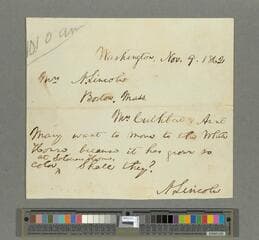 10 am
Washington, Nov. 9. 1862
Mrs A. Lincoln
Boston, Mass
Mrs Cuthbert & Aunt
Mary want to move to the White
House because it has grown so
cold at Soldiers Home.
Shall they?
A. Lincoln